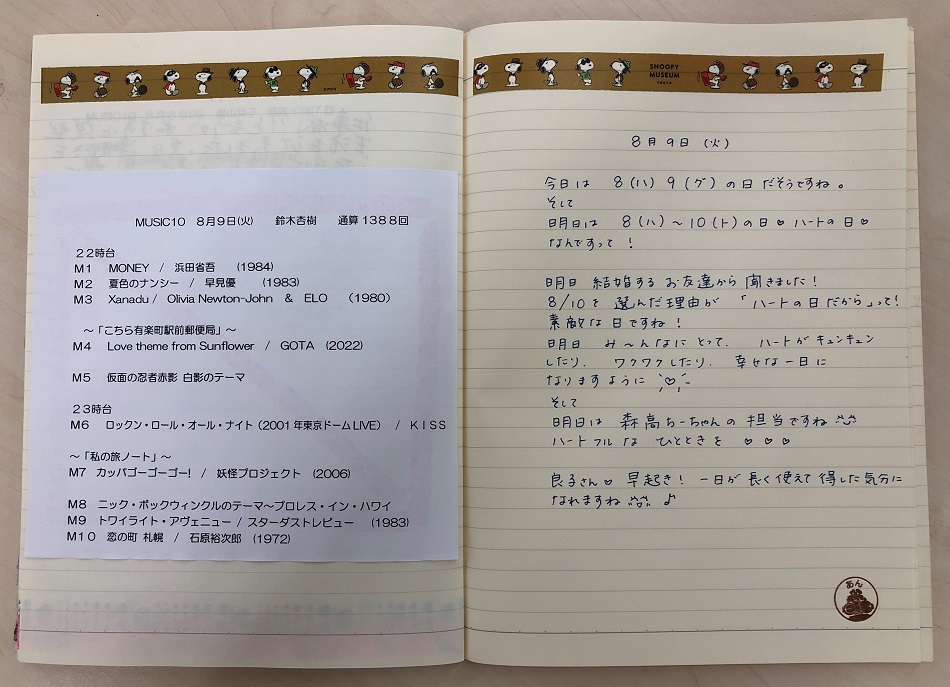 SNOOPY
MUSEUM
TOKYO
MUSIC10 8月9日(火) 鈴木杏樹 通算1388回
22時台
M1 MONEY / 浜田省吾 (1984)
M2 夏色のナンシー / 早見優 (1983)
M3 Xanadu / Olivia Newton-John & ELO (1980)
～「こちら有楽町駅前郵便局」～
M4 Love theme from Sunflower / GOTA (2022)
M5 仮面の忍者赤影 白影のテーマ
23時台
M6 ロックン・ロール・オール・ナイト(2001年東京ドームLIVE) / KISS
～「私の旅ノート」～
M7 カッパゴーゴーゴー! / 妖怪プロジェクト (2006)
M8 ニック・ボックウィンクルのテーマ～プロレス・イン・ハワイ
M9 トワイライト・アヴェニュー / スターダストレビュー (1983)
M10 恋の町 札幌 / 石原裕次郎 (1972)
8月9日(火)
今日は 8(ハ)9(グ)の日だそうですね。
そして
明日は 8(ハ)～10(ト)の日♡ハートの日♡
なんですって!
明日 結婚する お友達から 聞きました!
8/10を 選んだ理由が 「ハートの日だから」って!
素敵な日ですね!
明日 み〜んなにとって、 ハートがキュンキュン
したり、ワクワクしたり、幸せな一日に
なりますように ♡
そして
明日は 森高ちーちゃんの 担当ですね
ハートフルな ひとときを ♡ ♡ ♡
良子さん♡ 早起き! 一日が長く使えて得した気分に
なれますね ♪
あん